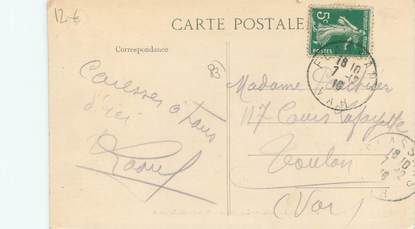 12 €
CARTE POSTALE
Correspondance
5c
83
Caresses à tous
d'ici
Raoul
Madame
117 Cours Lafayette
Toulon
(Var)
18 10
7 -12
VAR
18 10
7 -12